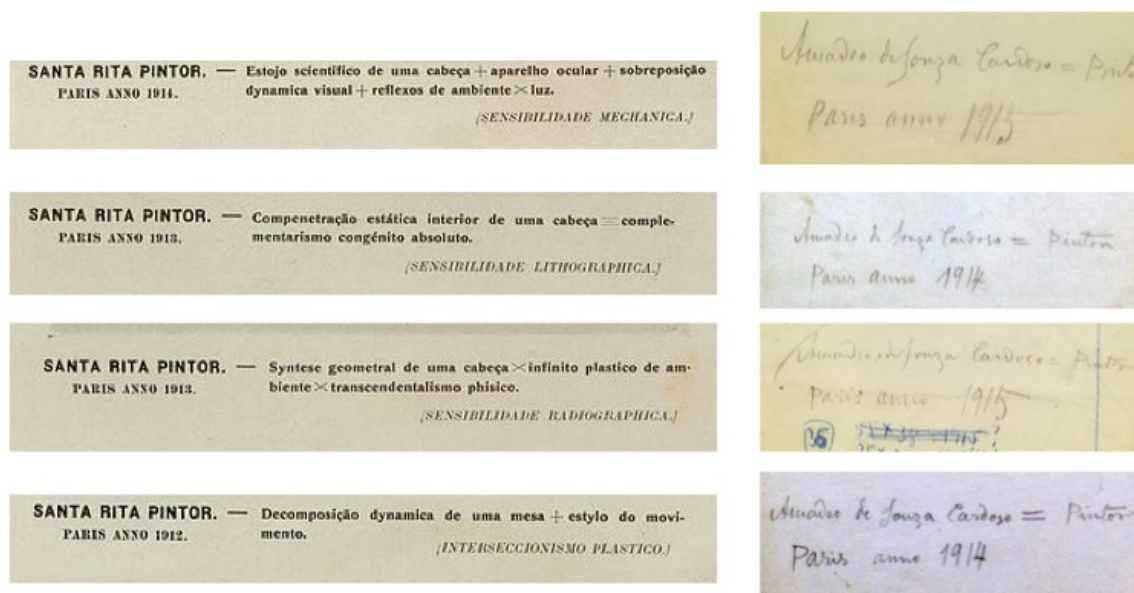 SANTA RITA PINTOR. — Estojo scientifico de uma cabeça + aparelho ocular + sobreposição
PARIS ANNO 1914. dynamica visual + reflexos de ambiente × luz.
(SENSIBILIDADE MECHANICA.)
SANTA RITA PINTOR. — Compenetração estática interior de uma cabeça = comple-
PARIS ANNO 1913. mentarismo congénito absoluto.
(SENSIBILIDADE LITHOGRAPHICA.)
SANTA RITA PINTOR. — Syntese geometral de uma cabeça × infinito plastico de am-
PARIS ANNO 1913. biente × transcendentalismo phisico.
(SENSIBILIDADE RADIOGRAPHICA.)
SANTA RITA PINTOR. — Decomposição dynamica de uma mesa + estylo do movi-
PARIS ANNO 1912. mento.
(INTERSECCIONISMO PLASTICO.)
Amadeo de Souza Cardoso = Pinto
Paris anno 1915
Amadeo de Souza Cardoso = Pintor
Paris anno 1914
Amadeo de Souza Cardoso = Pintor
Paris anno 1915
36
Amadeo de Souza Cardoso = Pintor
Paris anno 1914